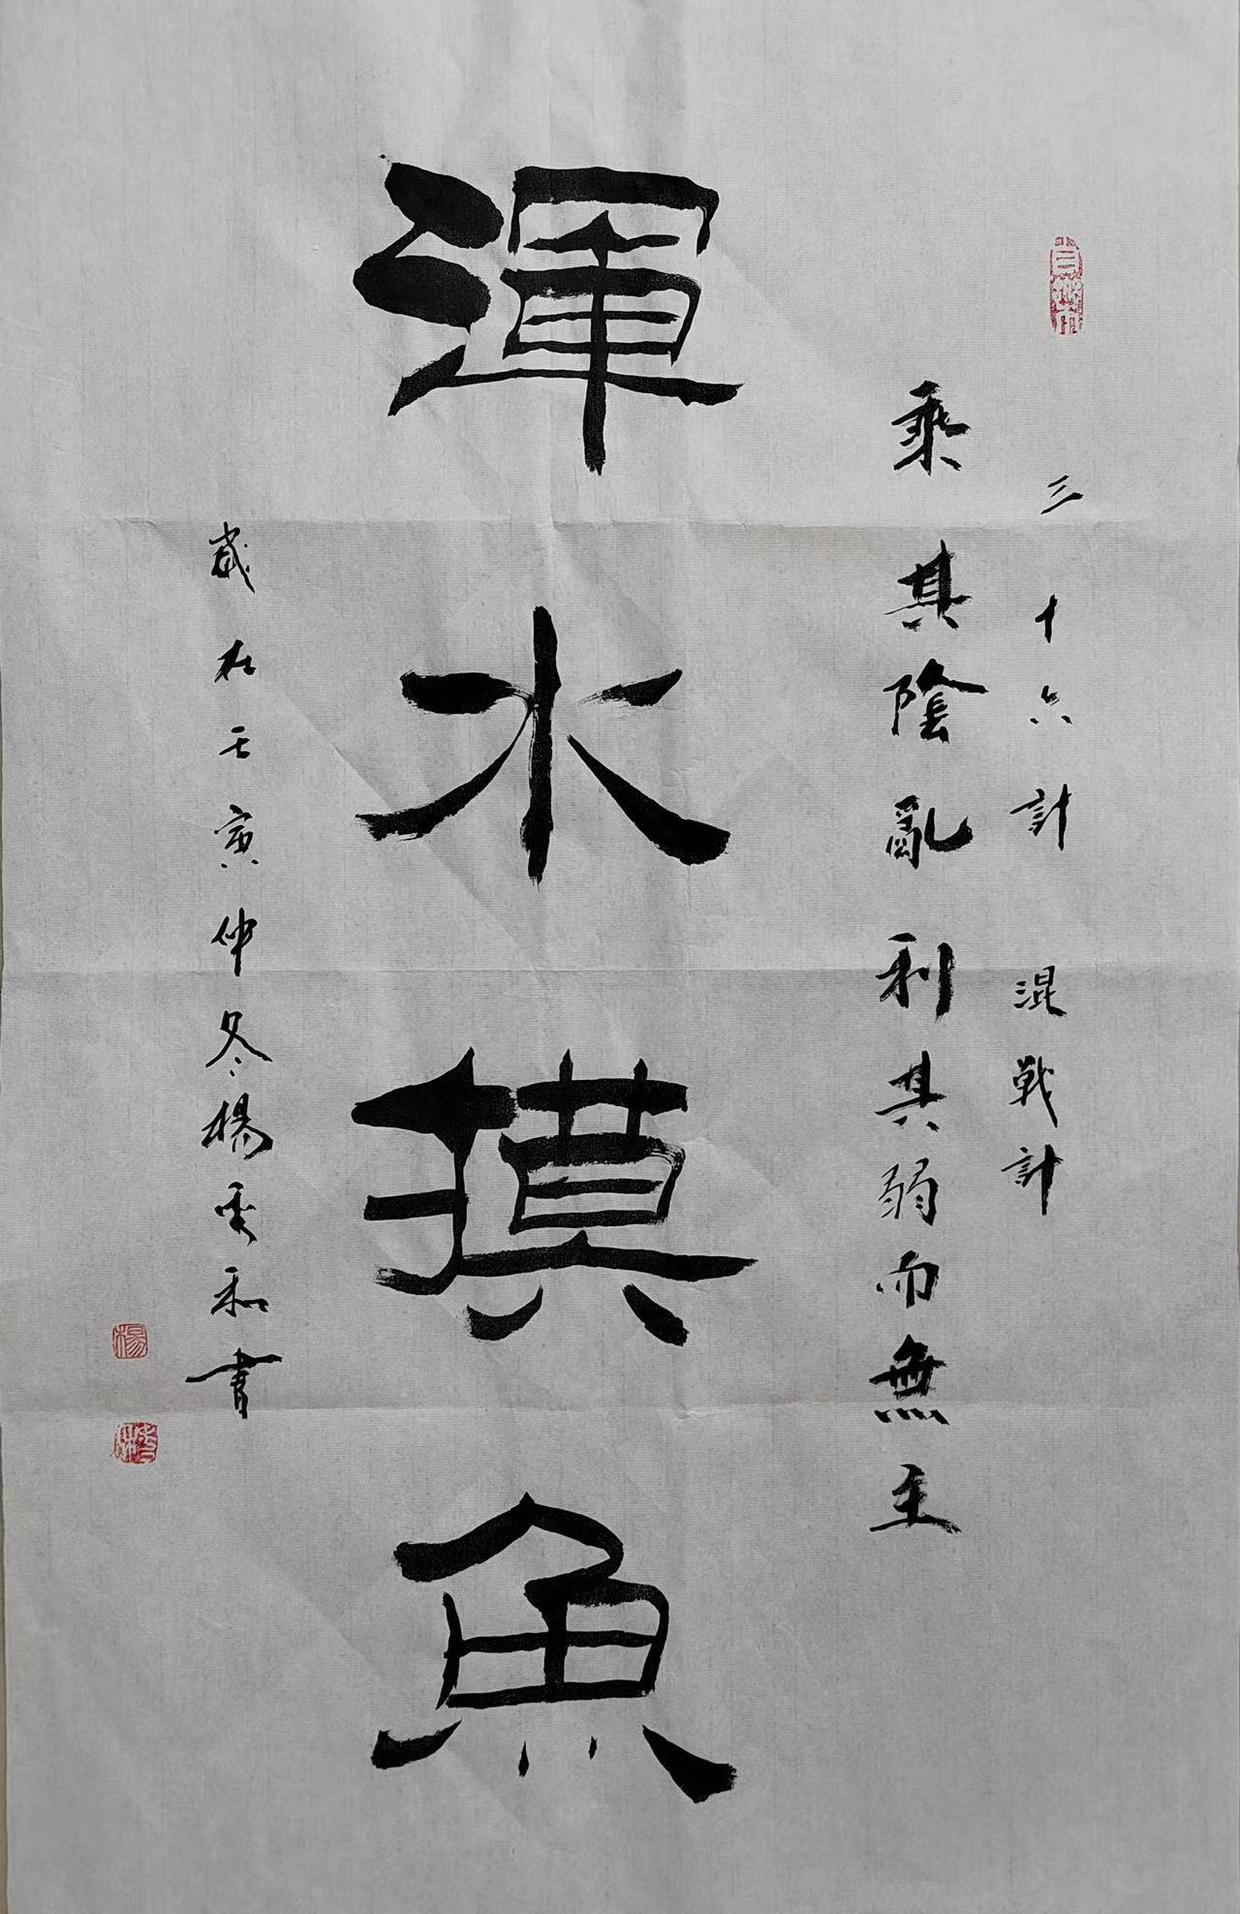 三十六計 混戰計
乘其陰亂利其弱而無主
渾水摸魚
歲在壬寅仲冬楊秀和書
楊